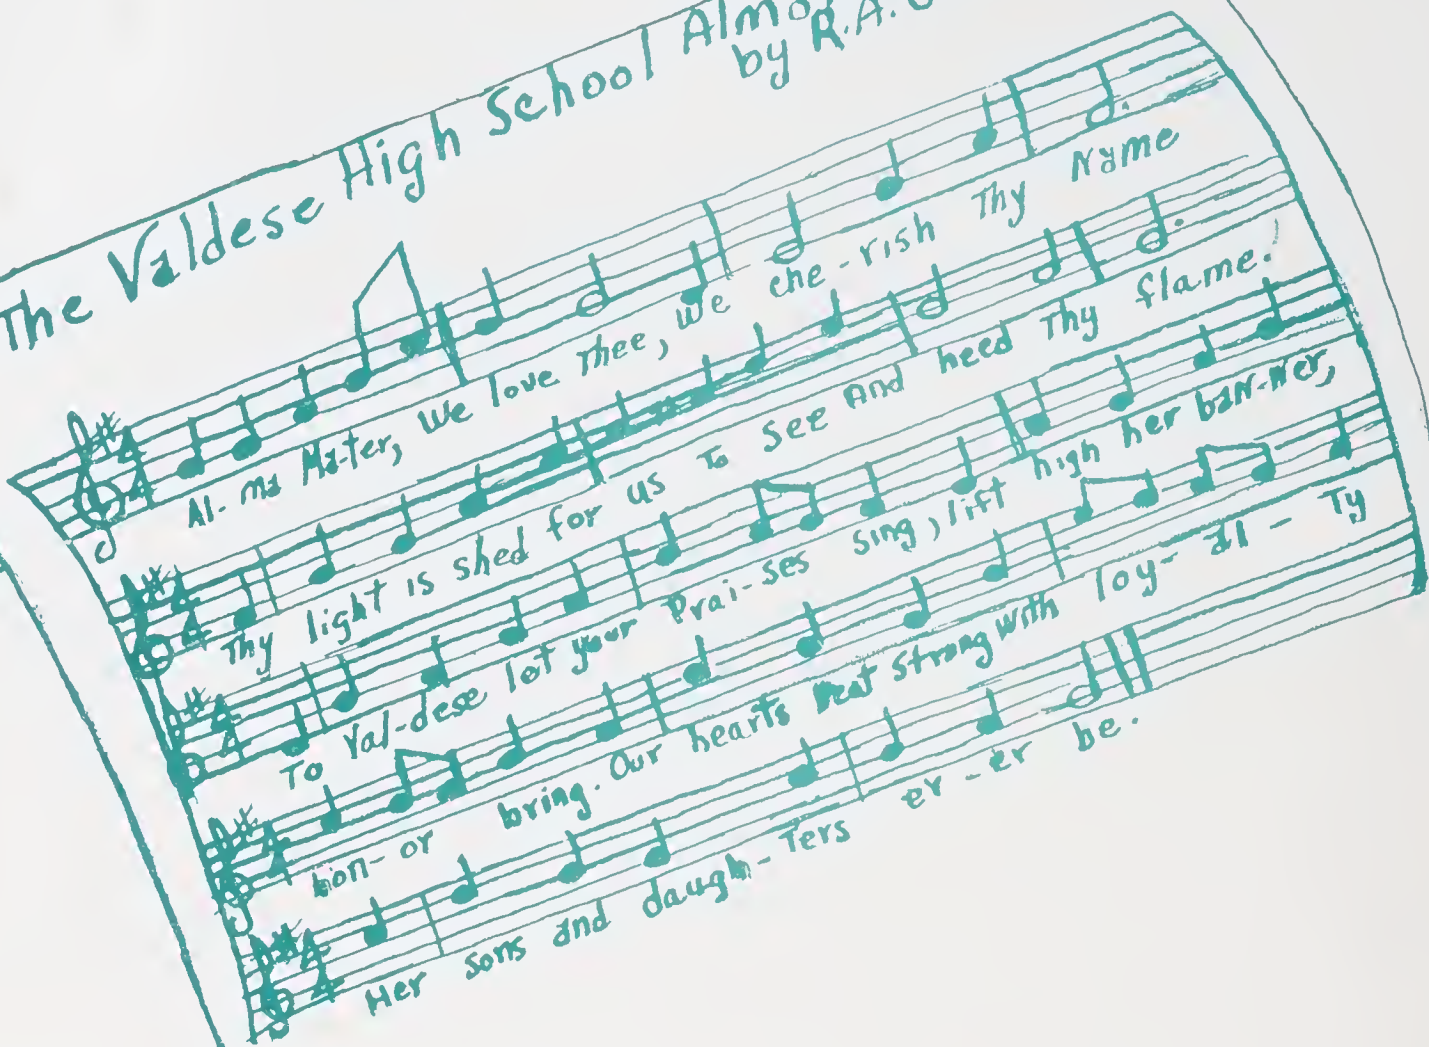 The Valdese High School Alma
by R.A.
Al-ma Ma-ter, We love Thee, We che-rish Thy Name
Thy light is shed for us To See And heed Thy flame.
To Val-dese let your Prai-ses Sing, lift high her ban-ner,
hon-or bring. Our hearts beat strong with loy-al-Ty
Her sons and daugh-Ters er-er be.